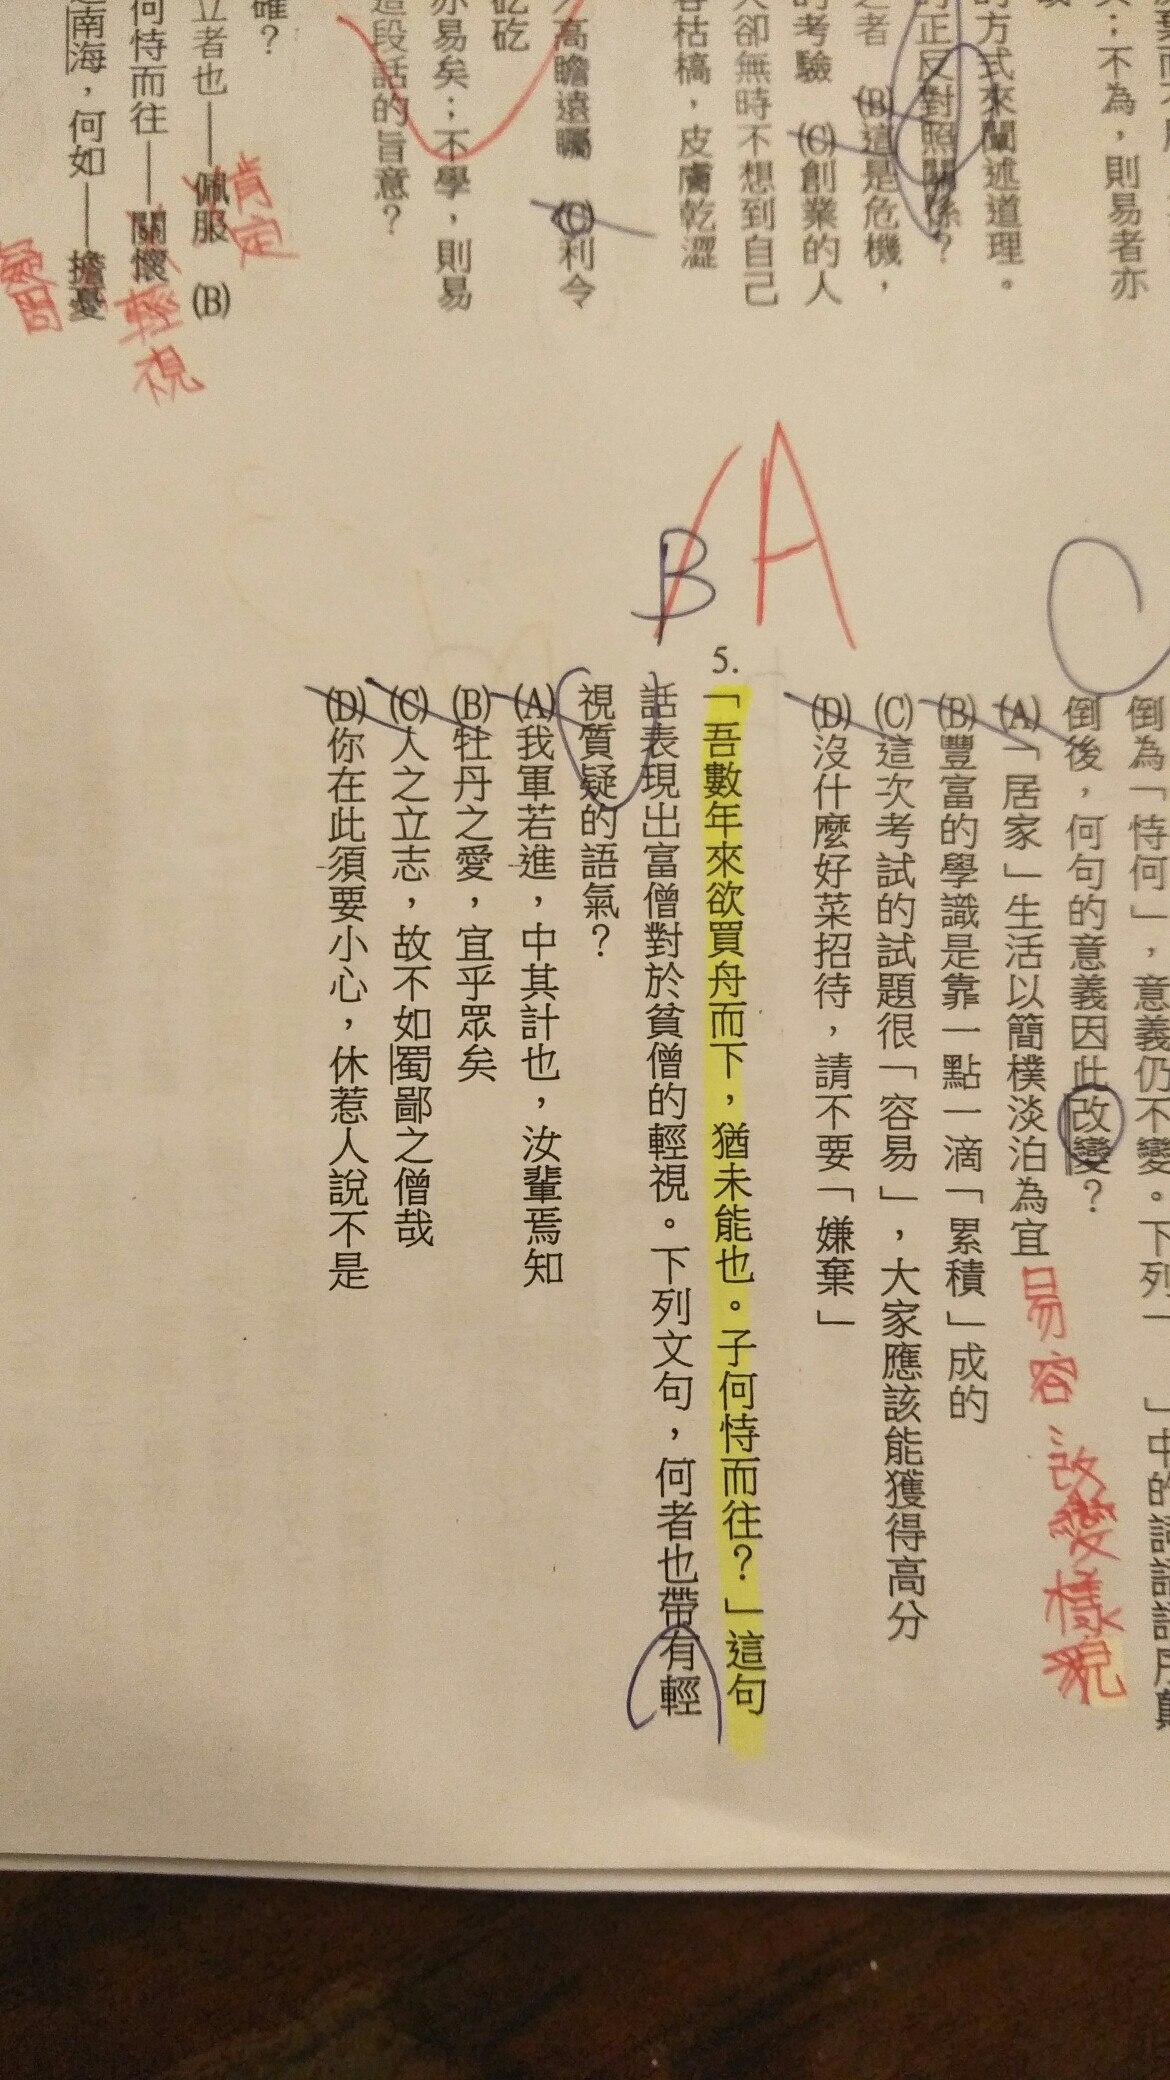 倒為「恃何」，意義仍不變。下列「
倒後，何句的意義因此改變？
(A)「居家」生活以簡樸淡泊為宜
易容：改變樣貌
(B)豐富的學識是靠一點一滴「累積」成的
(C)這次考試的試題很「容易」，大家應該能獲得高分
(D)沒什麼好菜招待，請不要「嫌棄」
C
A
B
5.
「吾數年來欲買舟而下，猶未能也。子何恃而往？」這句
話表現出富僧對於貧僧的輕視。下列文句，何者也帶有輕
視質疑的語氣？
(A)我軍若進，中其計也，汝輩焉知
(B)牡丹之愛，宜乎眾矣
(C)人之立志，故不如蜀鄙之僧哉
(D)你在此須要小心，休惹人說不是
；不為，則易者亦
的方式來闡述道理。
的正反對照關係？
之者 (B)這是危機，
的考驗 (C)創業的人
卻無時不想到自己
容枯槁，皮膚乾澀
高瞻遠矚 (C)利令
矻矻
亦易矣；不學，則易
這段話的旨意？
確？
立者也——佩服 (B)
肯定
何恃而往——關懷
輕視
南海，何如——擔憂
疑問